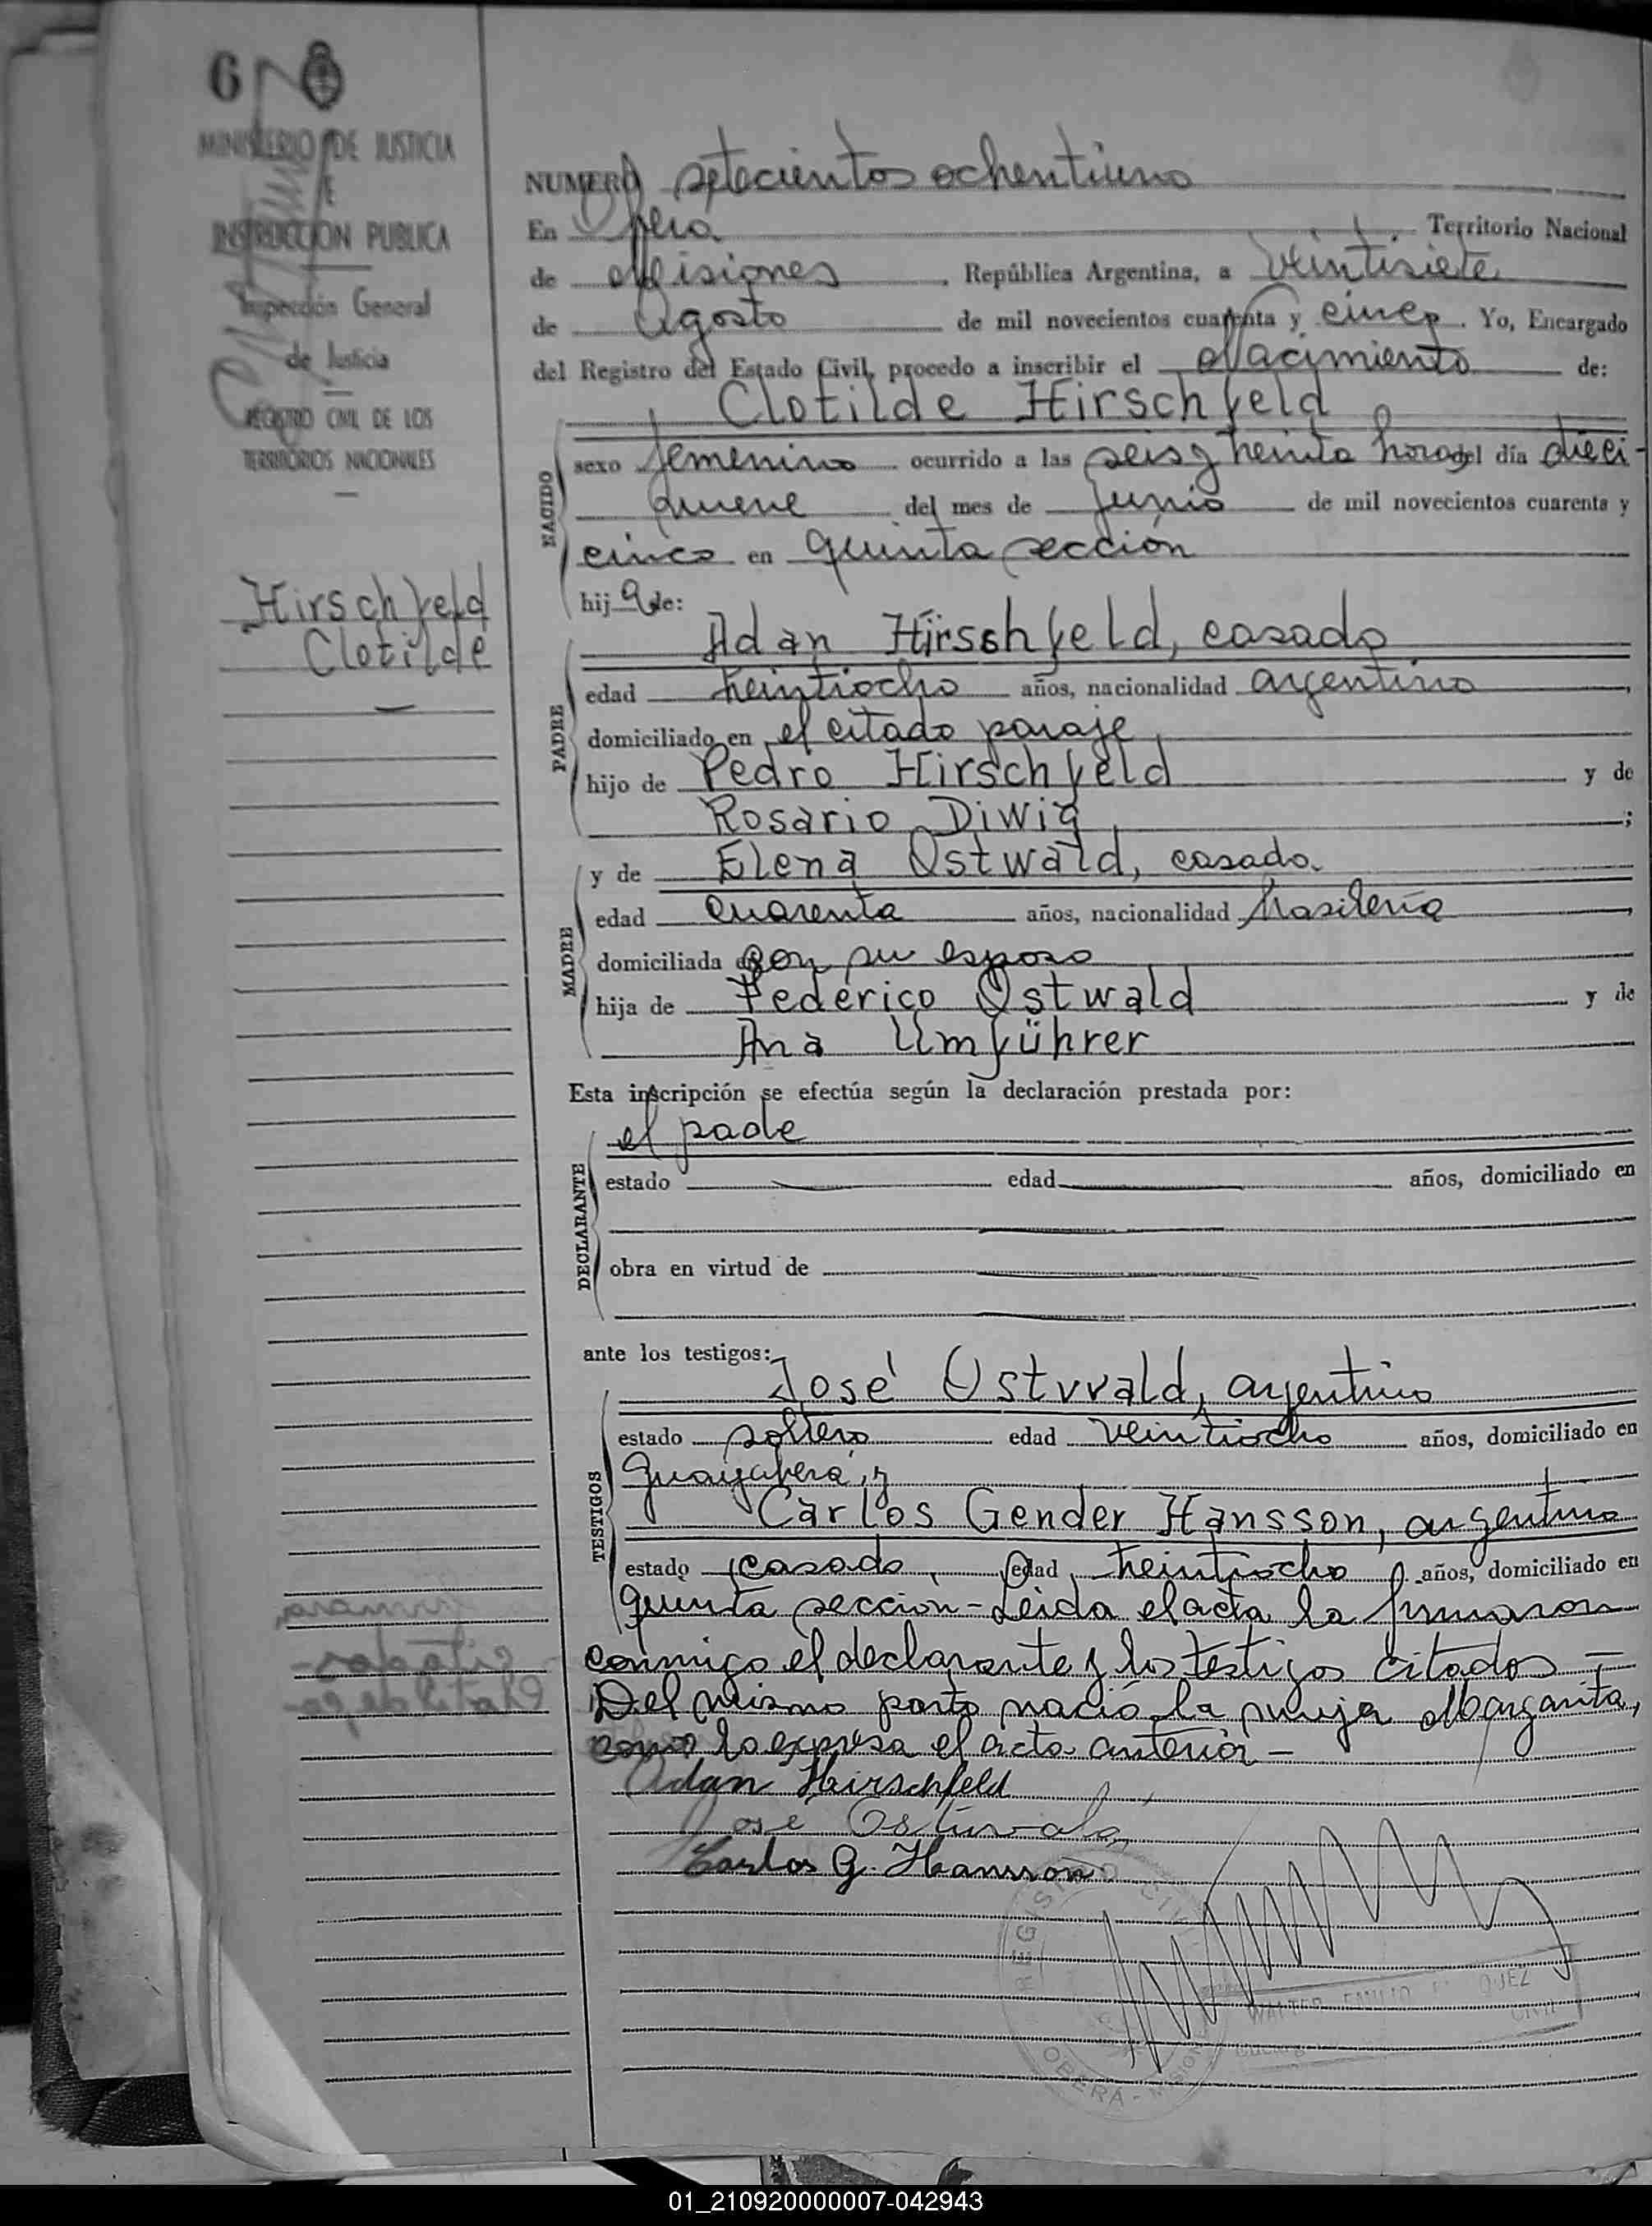 6
MINISTERIO DE JUSTICIA
E
INSTRUCCION PUBLICA
Inspección General
de Justicia
REGISTRO CIVIL DE LOS
TERRITORIOS NACIONALES
Hirschfeld
Clotilde
NUMERO setecientos ochentiuno
En Oberá Territorio Nacional
de Misiones, República Argentina, a veintisiete
de Agosto de mil novecientos cuarenta y cinco. Yo, Encargado
del Registro del Estado Civil, procedo a inscribir el Nacimiento de:
Clotilde Hirschfeld
NACIDO
sexo femenino ocurrido a las seis y treinta horas del día dieci-
nueve del mes de junio de mil novecientos cuarenta y
cinco en quinta sección
hija de:
PADRE
Adan Hirsshfeld, casado
edad treintiocho años, nacionalidad argentino,
domiciliado en el citado paraje,
hijo de Pedro Hirschfeld y de
Rosario Diwig;
MADRE
y de Elena Ostwald, casada
edad cuarenta años, nacionalidad brasileña,
domiciliada con su esposo
hija de Federico Ostwald y de
Ana Umführer
Esta inscripción se efectúa según la declaración prestada por:
DECLARANTE
el padre
estado edad años, domiciliado en
obra en virtud de
ante los testigos:
TESTIGOS
José Ostwald, argentino
estado soltero edad veintiocho años, domiciliado en
Guayabera, y
Carlos Gender Hansson, argentino
estado casado, edad treintiocho años, domiciliado en
quinta sección- Leida el acta la firmaron
conmigo el declarante y los testigos citados -
Del mismo parto nació la mujer Margarita,
como lo expresa el acta anterior-
Adan Hirschfeld
Jose Ostwald
Carlos G. Hansson
REGISTRO CIVIL
OBERA - MISIONES
WALTER EMILIO
CIVIL
01_210920000007-042943